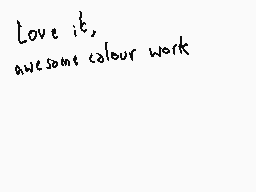 Love it,
awesome colour work